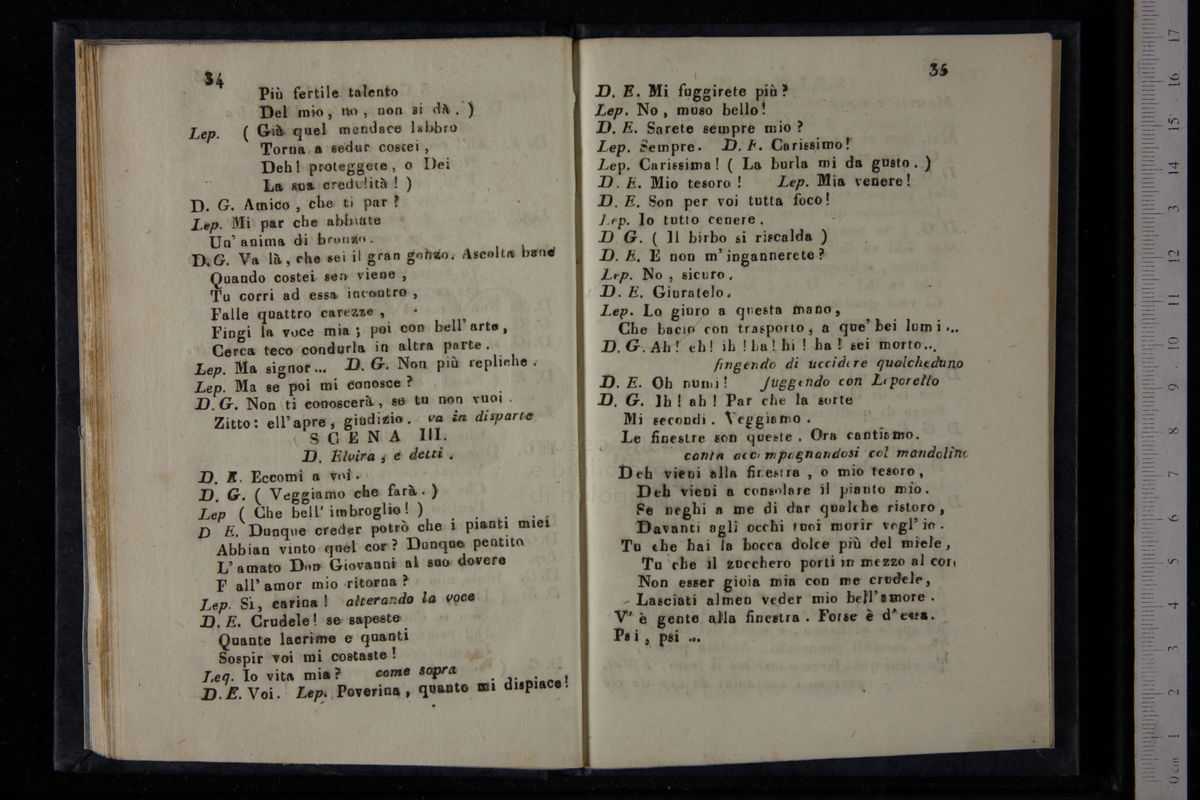 34
Più fertile talento
Del mio, no, non si dà. )
Lep. ( Già quel mendace labbro
Torna a sedur costei,
Deh! proteggete, o Dei
La sua credulità! )
D. G. Amico, che ti par?
Lep. Mi par che abbiate
Un' anima di bronzo.
D. G. Va là, che sei il gran gonzo. Ascolta bene
Quando costei sen viene,
Tu corri ad essa incontro,
Falle quattro carezze,
Fingi la voce mia; poi con bell' arte,
Cerca teco condurla in altra parte.
Lep. Ma signor... D. G. Non più repliche.
Lep. Ma se poi mi conosce?
D. G. Non ti conoscerà, se tu non vuoi.
Zitto: ell' apre, giudizio. va in disparte
SCENA III.
D. Elvira, e detti.
D. E. Eccomi a voi.
D. G. ( Veggiamo che farà. )
Lep ( Che bell' imbroglio! )
D E. Dunque creder potrò che i pianti miei
Abbian vinto quel cor? Dunque pentito
L' amato Don Giovanni al suo dovere
E all' amor mio ritorna?
Lep. Sì, carina! alterando la voce
D. E. Crudele! se sapeste
Quante lacrime e quanti
Sospir voi mi costaste!
Leq. Io vita mia? come sopra
D. E. Voi. Lep. Poverina, quanto mi dispiace!
35
D. E. Mi fuggirete più?
Lep. No, muso bello!
D. E. Sarete sempre mio?
Lep. Sempre. D. E. Carissimo!
Lep. Carissima! ( La burla mi da gusto. )
D. E. Mio tesoro! Lep. Mia venere!
D. E. Son per voi tutta foco!
Lep. Io tutto cenere.
D G. ( Il birbo si riscalda )
D. E. E non m' ingannerete?
Lep. No, sicuro.
D. E. Giuratelo.
Lep. Lo giuro a questa mano,
Che bacio con trasporto, a que' bei lumi...
D. G. Ah! eh! ih! ha! hi! ha! sei morto...
fingendo di uccidere qualcheduno
D. E. Oh numi! fuggendo con Leporello
D. G. Ih! ah! Par che la sorte
Mi secondi. Veggiamo.
Le finestre son queste. Ora cantiamo.
canta accompagnandosi col mandolino
Deh vieni alla finestra, o mio tesoro,
Deh vieni a consolare il pianto mio.
Se neghi a me di dar qualche ristoro,
Davanti agli occhi tuoi morir vogl' io.
Tu che hai la bocca dolce più del miele,
Tu che il zucchero porti in mezzo al core
Non esser gioia mia con me crudele,
Lasciati almen veder mio bell' amore.
V' è gente alla finestra. Forse è d' essa.
Psi, psi ...
0 cm 1 2 3 4 5 6 7 8 9 10 11 12 13 14 15 16 17